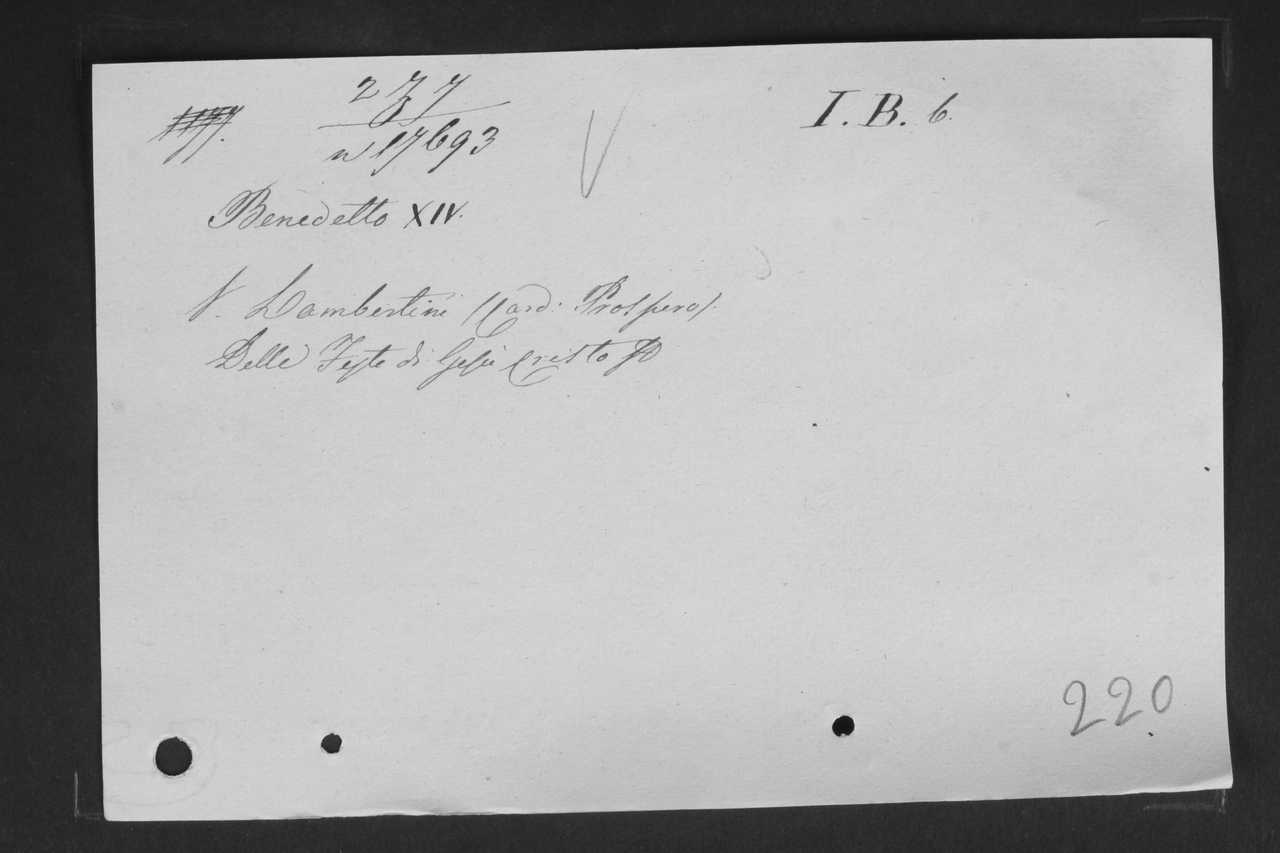 2 7 7
I. B. 6.
n 17693
Benedetto XIV.
V. Lambertini (Card: Prospero).
Delle Feste di Gesù Cristo
220